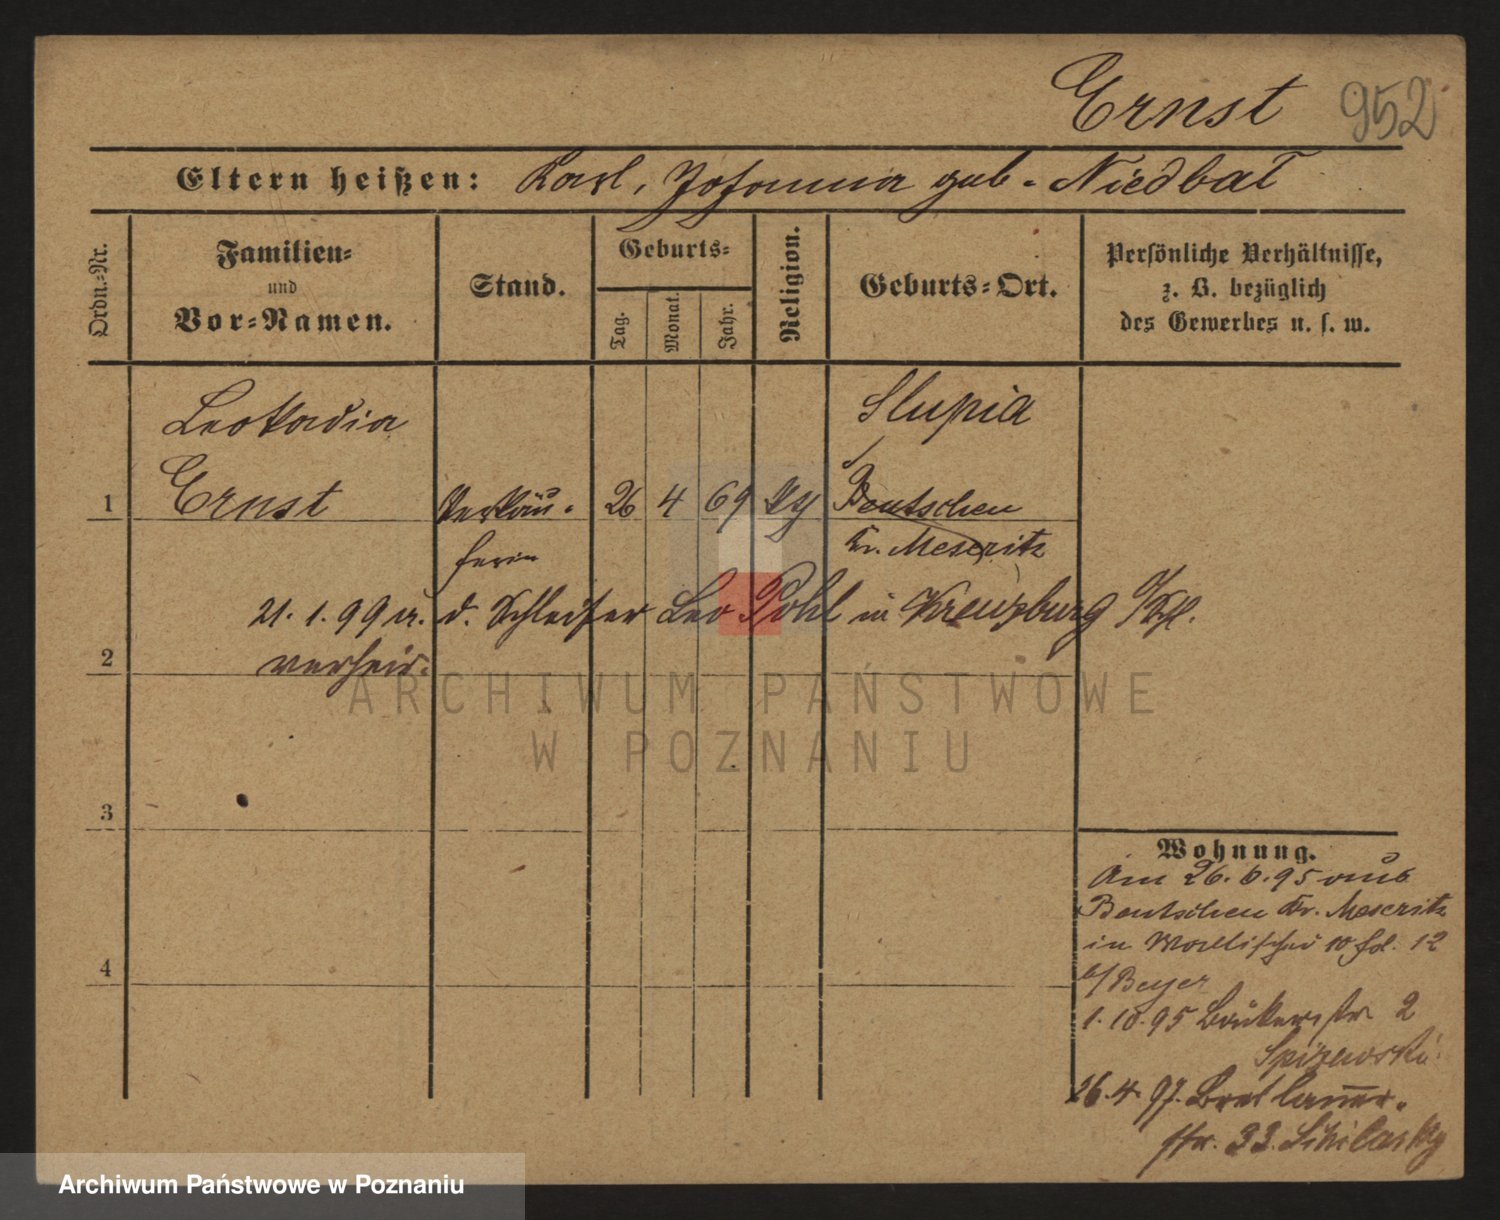 Ernst 952
Eltern heißen: Karl, Johanna geb. Niedbal
Ordn.-Nr.
Familien-
und
Vor-Namen.
Stand.
Geburts-
Tag.
Monat.
Jahr.
Religion.
Geburts-Ort.
Persönliche Verhältnisse,
z. B. bezüglich
des Gewerbes u. s. w.
Leokadia Slupia
1 Ernst Verkäu- 26 4 69 Bentschen
ferin Kr. Meseritz
21. 1. 99 d. Schleifer Leo Pohl in Kreuzburg
2 verheir.
3
4
Wohnung.
Am 26. 6. 95 aus
Bentschen Kr. Meseritz
in Wallischei 10 12
b/Beyer
1. 10. 95 2
26. 4. 97. Breslauer-
str. 33.
ARCHIWUM PAŃSTWOWE
W POZNANIU
Archiwum Państwowe w Poznaniu